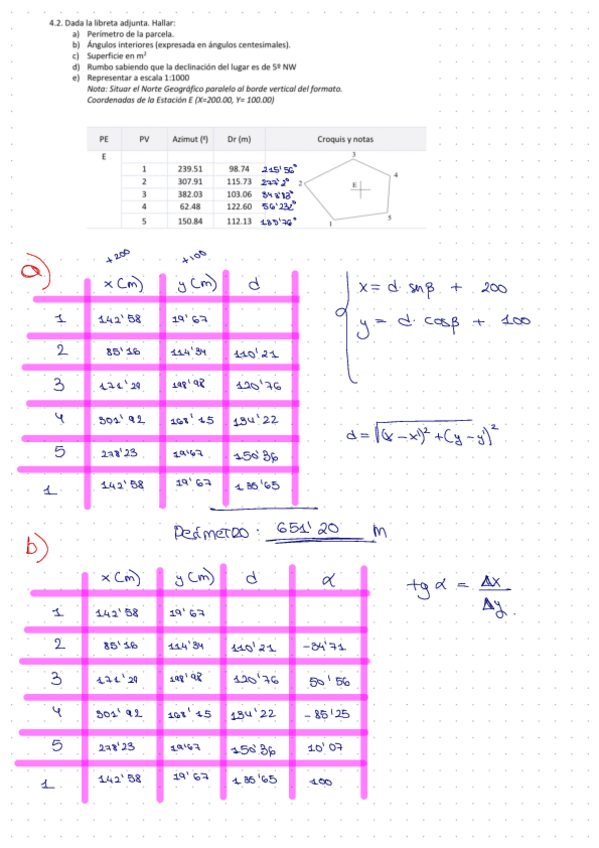 4.2. Dada la libreta adjunta. Hallar:
a) Perímetro de la parcela.
b) Ángulos interiores (expresada en ángulos centesimales).
c) Superficie en m²
d) Rumbo sabiendo que la declinación del lugar es de 5º NW
e) Representar a escala 1:1000
Nota: Situar el Norte Geográfico paralelo al borde vertical del formato.
Coordenadas de la Estación E (X=200.00, Y= 100.00)
PE PV Azimut (ᵍ) Dr (m) Croquis y notas
E
1 239.51 98.74 215'56°
2 307.91 115.73 277'2°
3 382.03 103.06 343'83°
4 62.48 122.60 56'232°
5 150.84 112.13 135'76°
3
4
2
E
5
1
a)
+200 +100
x (m) y (m) d
1 142'58 19'67
2 85'16 114'34 110'21
3 171'29 198'98 120'76
4 301'92 168'15 134'22
5 278'23 19'67 150'36
1 142'58 19'67 135'65
x = d · sen β + 200
y = d · cos β + 100
d = √(x - x')² + (y - y')²
Perímetro : 651'20 m
b)
x (m) y (m) d α
1 142'58 19'67
2 85'16 114'34 110'21 -34'71
3 171'29 198'98 120'76 50'56
4 301'92 168'15 134'22 -85'25
5 278'23 19'67 150'36 10'07
1 142'58 19'67 135'65 100
tg α = Δx / Δy